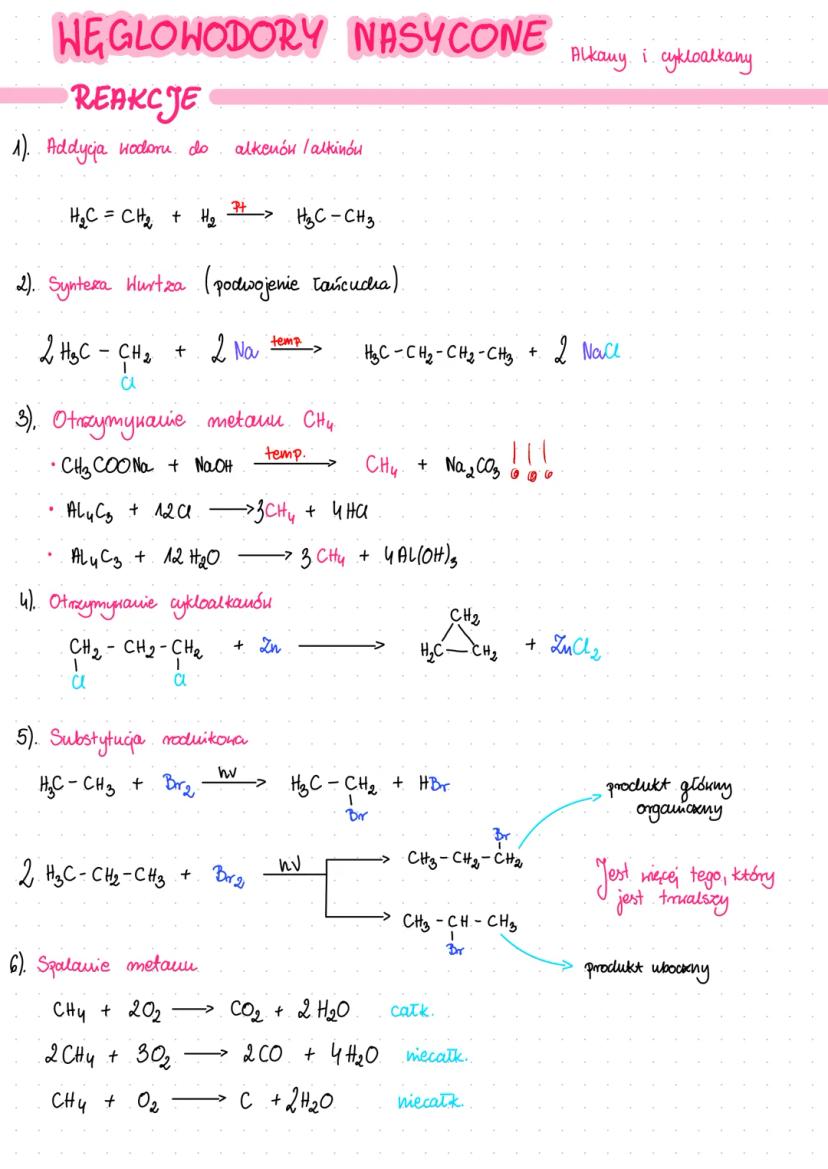 WĘGLOWODORY NASYCONE Alkany i cykloalkany
REAKCJE
1). Addycja wodoru do alkenów/alkinów
H₂C = CH₂ + H₂ Pt → H₃C – CH₃
2). Synteza Wurtza (podwojenie łańcucha)
2 H₃C – CH₂ + 2 Na temp → H₃C – CH₂ – CH₂ – CH₃ + 2 NaCl
Cl
3). Otrzymywanie metanu CH₄
• CH₃COONa + NaOH temp. → CH₄ + Na₂CO₃ !!!
• Al₄C₃ + 12Cl → 3CH₄ + 4HCl
• Al₄C₃ + 12 H₂O → 3 CH₄ + 4Al(OH)₃
4). Otrzymywanie cykloalkanów
CH₂
CH₂ – CH₂ – CH₂ + Zn → H₂C – CH₂ + ZnCl₂
Cl Cl
5). Substytucja rodnikowa
H₃C – CH₃ + Br₂ hν → H₃C – CH₂ + HBr
Br
produkt główny
organiczny
Br
2 H₃C – CH₂ – CH₃ + Br₂ hν → CH₃ – CH₂ – CH₂
Jest więcej tego, który
jest trwalszy
→ CH₃ – CH – CH₃
Br
produkt uboczny
6). Spalanie metanu
CH₄ + 2O₂ → CO₂ + 2 H₂O całk.
2CH₄ + 3O₂ → 2CO + 4H₂O niecałk.
CH₄ + O₂ → C + 2H₂O niecałk.